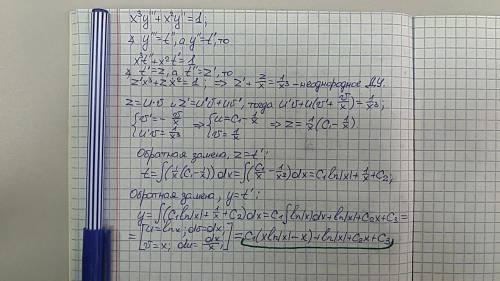 x³y''' + x²y'' = 1;
y''' = t'', а y'' = t', то
x³t'' + x²t' = 1
t' = z, а t'' = z', то
z'x³ + zx² = 1; ⇒ z' + z/x = 1/x³ - неоднородное ДУ.
z = u·v, z' = u'v + uv', тогда u'v + u(v' + v/x) = 1/x³;
{v' = -v/x; u'v = 1/x³ ⇒ {u = C₁ - 1/x; v = 1/x ⇒ z = 1/x (C₁ - 1/x)
Обратная замена, z = t':
t = ∫(1/x (C₁ - 1/x))dx = ∫(C₁/x - 1/x²)dx = C₁ln|x| + 1/x + C₂;
Обратная замена, y = t':
y = ∫(C₁ln|x| + 1/x + C₂)dx = C₁∫ln|x|dx + ln|x| + C₂x + C₃ =
= [u = lnx; dv = dx; v = x; du = dx/x] = C₁(xln|x| - x) + ln|x| + C₂x + C₃